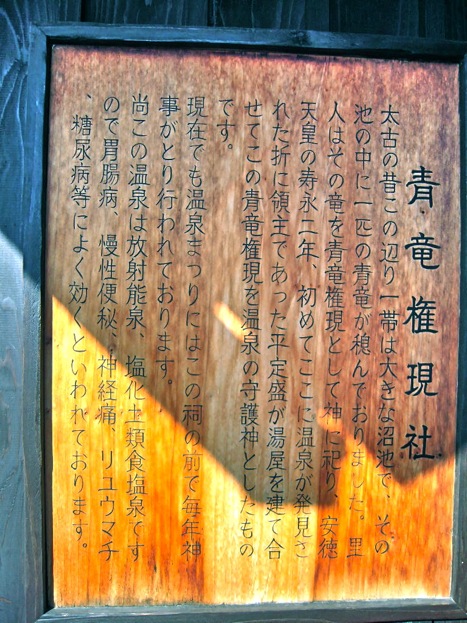 青竜権現社
太古の昔この辺り一帯は大きな沼池で、その
池の中に一匹の青竜が棲んでおりました。里
人はその竜を青竜権現として神に祀り、安徳
天皇の寿永二年、初めてここに温泉が発見さ
れた折に領主であった平定盛が湯屋を建て合
せてこの青竜権現を温泉の守護神としたもの
です。
現在でも温泉まつりにはこの祠の前で毎年神
事がとり行われております。
尚この温泉は放射能泉、塩化土類食塩泉です
ので胃腸病、慢性便秘、神経痛、リユウマチ
、糖尿病等によく効くといわれております。